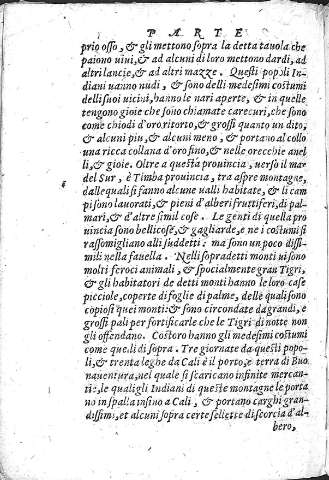 PARTE
prio osso, & gli mettono sopra la detta tauola che
paiono uiui, & ad alcuni di loro mettono dardi, ad
altri lancie, & ad altri mazze. Questi popoli In-
diani uanno nudi, & sono delli medesimi costumi
delli suoi uicini, hanno le nari aperte, & in quelle
tengono gioie che sono chiamate carecuri, che sono
come chiodi d'oro ritorto, & grossi quanto un dito,
& alcuni piu, & alcuni meno, & portano al collo
una ricca collana d'oro fino, & nelle orecchie anel-
li, & gioie. Oltre a questa prouincia, uerso il mar
del Sur, è Timba prouincia, tra aspre montagne,
dalle quali si fanno alcune ualli habitate, & li cam
pi sono lauorati, & pieni d'alberi fruttiferi, di pal-
mari, & d'altre simil cose. Le genti di quella pro
uincia sono bellicose, & gagliarde, e ne i costumi si
rassomigliano alli suddetti: ma sono un poco dissi-
mili nella fauella. Nelli sopradetti monti ui sono
molti feroci animali, & spocialmente gran Tigri,
& gli habitatori de detti monti hanno le loro case
picciole, coperte di foglie di palme, delle quali sono
copiosi quei monti: & sono circondate da grandi, e
grossi pali per fortificarle che le Tigri di notte non
gli offendano. Costoro hanno gli medesimi costumi
come queli di sopra. Tre giornate da questi popo-
li, & trenta leghe da Cali è il porto, e terra di Buo
nauentura, nel quale si scaricano infinite mercan-
tie, le quali gli Indiani di queste montagne le porta
no in spalla insino a Cali, & portano carghi gran-
dissimi, et alcuni sopra certe sellette di scorcia d'al-
bero,